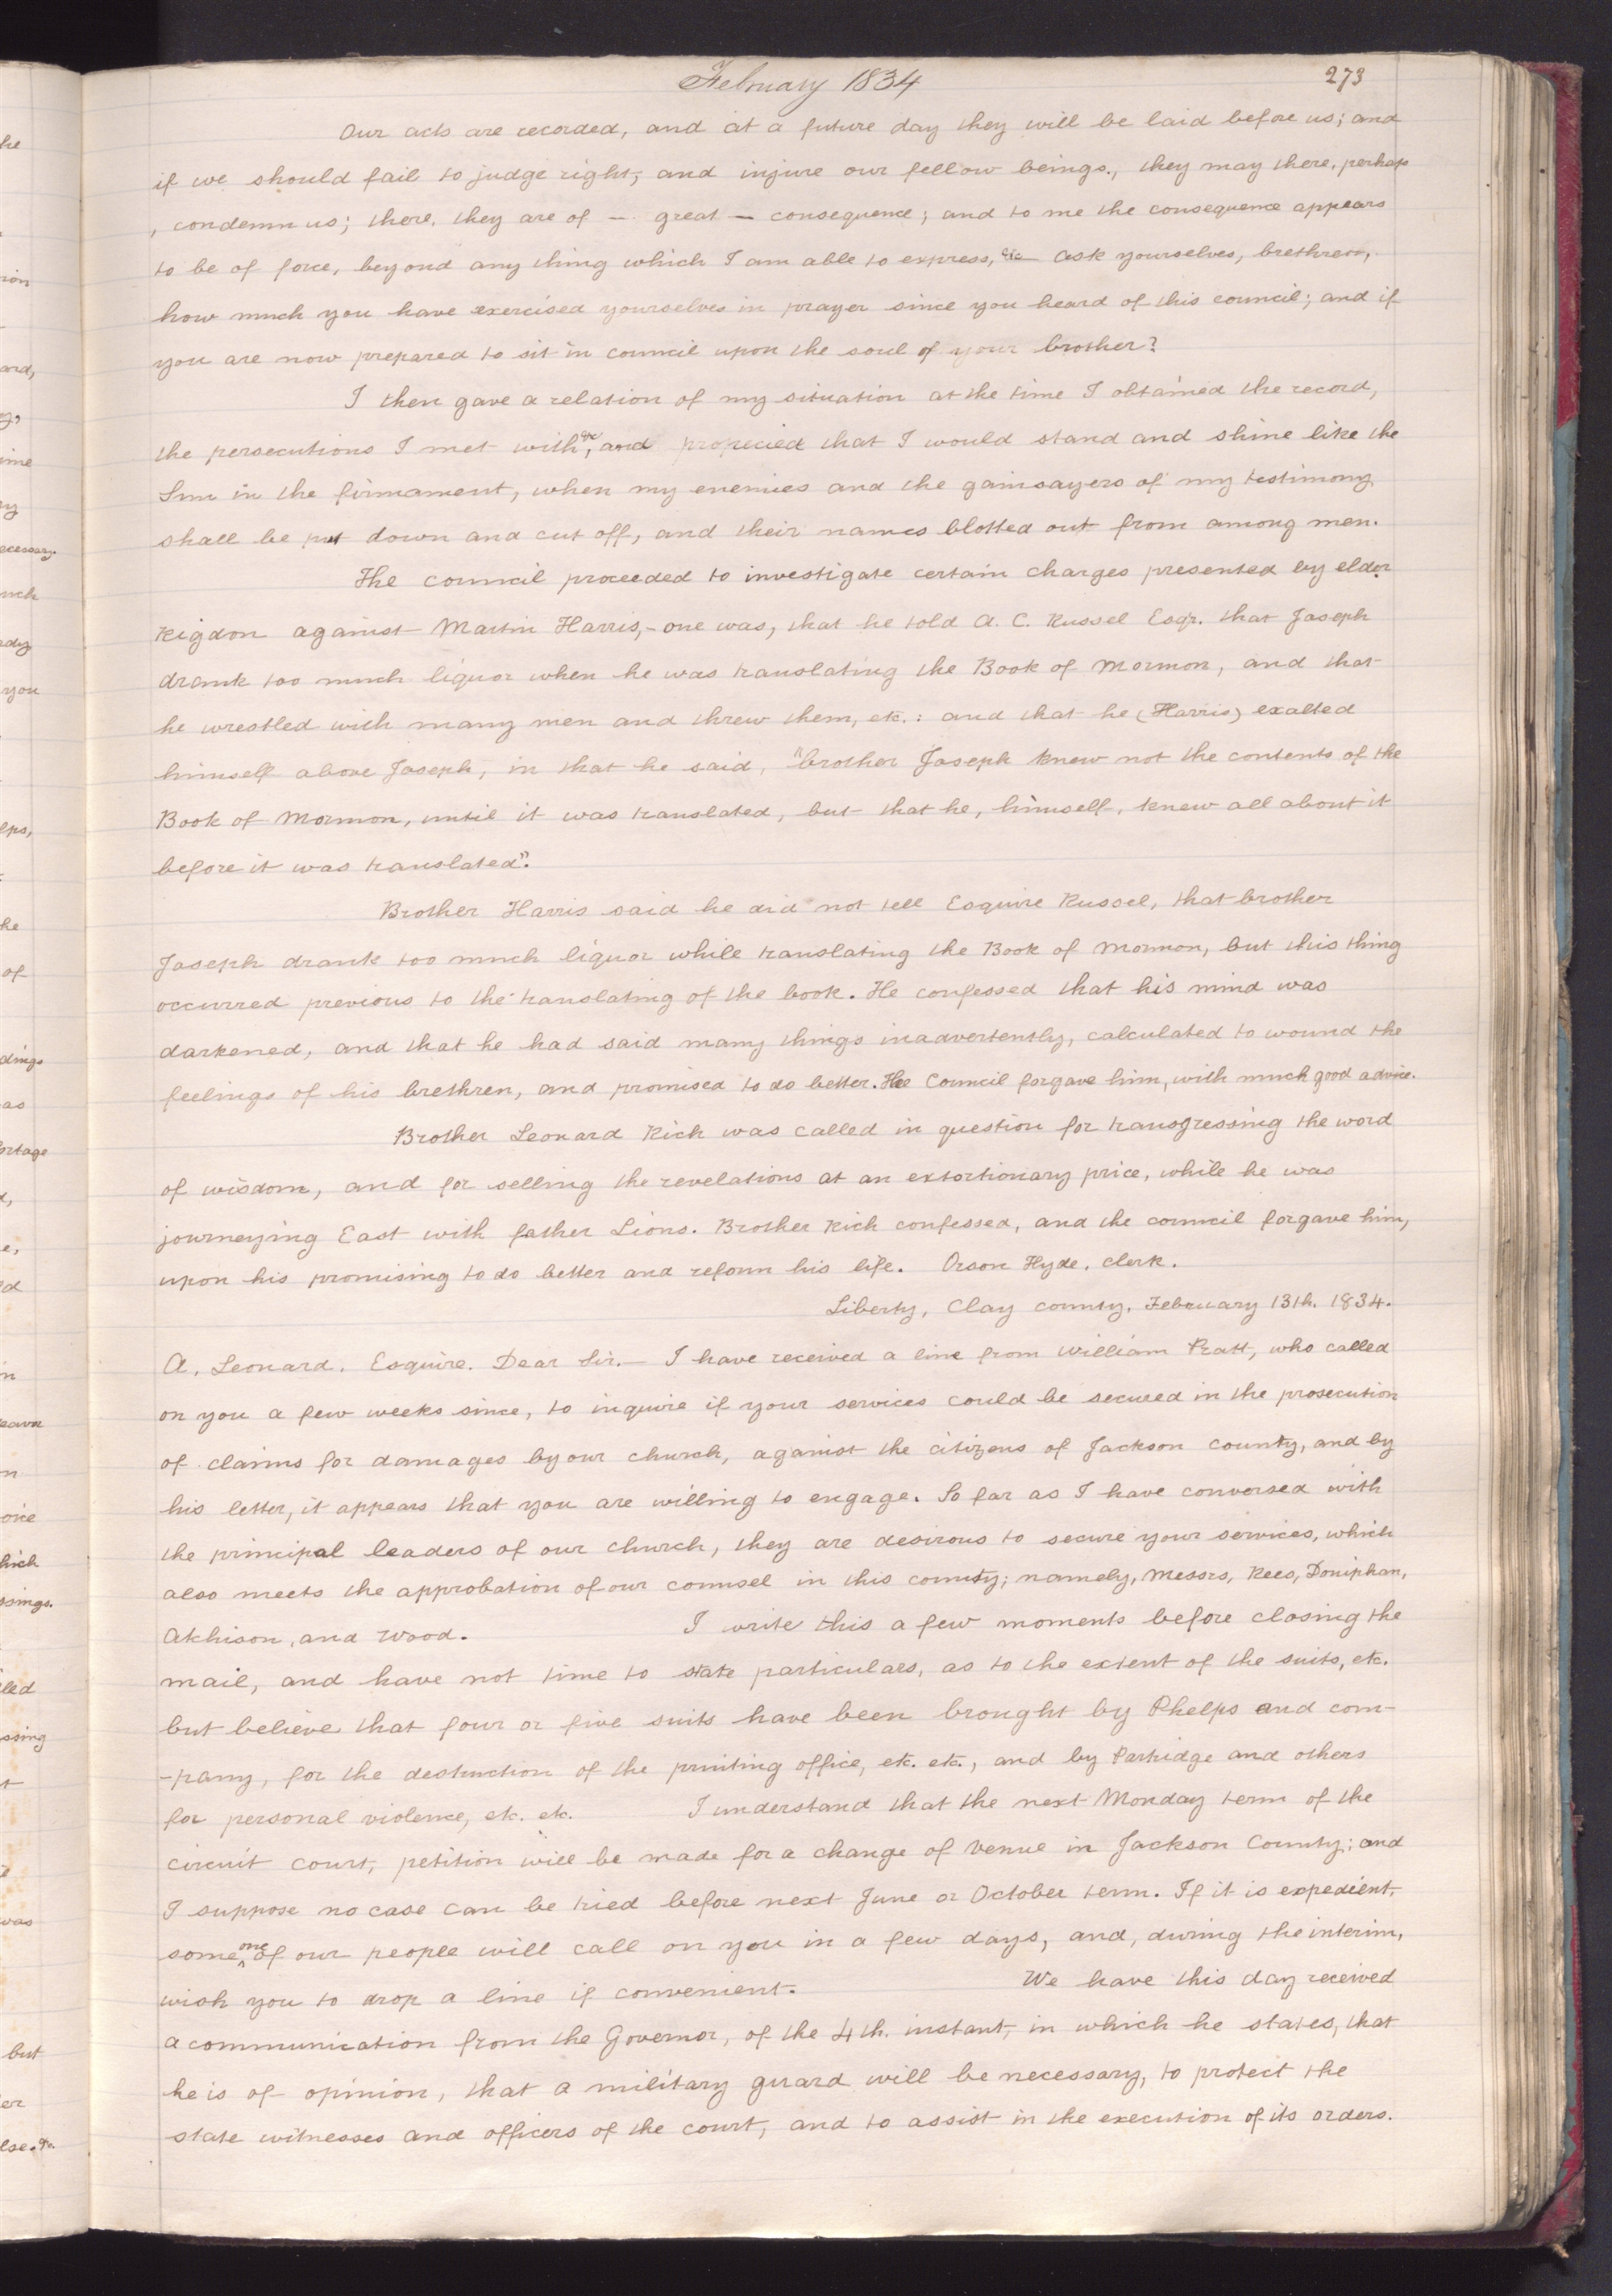 February 1834
273
Our acts are recorded, and at a future day they will be laid before us; and
if we should fail to judge right, and injure our fellow beings., they may there, perhaps
, condemn us; there, they are of — great — consequence; and to me the consequence appears
to be of force, beyond any thing which I am able to express, &c— ask yourselves, brethren,
how much you have exercised yourselves in prayer since you heard of this council; and if
you are now prepared to sit in council upon the soul of your brother?
I then gave a relation of my situation at the time I obtained the record,
the persecutions I met with, &c, and propecied that I would stand and shine like the
Sun in the firmament, when my enemies and the gainsayers of my testimony
shall be put down and cut off, and their names blotted out from among men.
The council proceeded to investigate certain charges presented by elder
Rigdon against Martin Harris,- one was, that he told A. C. Russel Esqr. that Joseph
drank too much liquor when he was translating the Book of Mormon, and that
he wrestled with many men and threw them, etc.: and that he (Harris) exalted
himself above Joseph, in that he said, "brother Joseph knew not the contents of the
Book of Mormon, until it was translated, but that he, himself, knew all about it
before it was translated".
Brother Harris said he did not tell Esquire Russel, that brother
Joseph drank too much liquor while translating the Book of Mormon, but this thing
occurred previous to the translating of the book. He confessed that his mind was
darkened, and that he had said many things inadvertently, calculated to wound the
feelings of his brethren, and promised to do better. The Council forgave him, with much good advice.
Brother Leonard Rich was called in question for transgressing the word
of wisdom, and for selling the revelations at an extortionary price, while he was
journeying East with father Lions. Brother Rich confessed, and the council forgave him,
upon his promising to do better and reform his life. Orson Hyde, clerk.
Liberty, Clay county, February 13th. 1834.
A. Leonard. Esquire. Dear Sir.— I have received a line from William Pratt, who called
on you a few weeks since, to inquire if your services could be secured in the prosecution
of claims for damages by our church, against the citizens of Jackson county, and by
his letter, it appears that you are willing to engage. So far as I have conversed with
the principal leaders of our church, they are desirous to secure your services, which
also meets the approbation of our counsel in this county; namely, Messrs, Rees, Doniphan,
Atchison, and Wood. I write this a few moments before closing the
mail, and have not time to state particulars, as to the extent of the suits, etc.
but believe that four or five suits have been brought by Phelps and com-
-pany, for the destruction of the printing office, etc. etc., and by Partridge and others
for personal violence, etc. etc. I understand that the next Monday term of the
circuit court, petition will be made for a change of venue in Jackson County; and
I suppose no case can be tried before next June or October term. If it is expedient,
some one of our people will call on you in a few days, and, during the interim,
wish you to drop a line if convenient. We have this day received
a communication from the Governor, of the 4th. instant, in which he states, that
he is of opinion, that a military guard will be necessary, to protect the
state witnesses and officers of the court, and to assist in the execution of its orders.